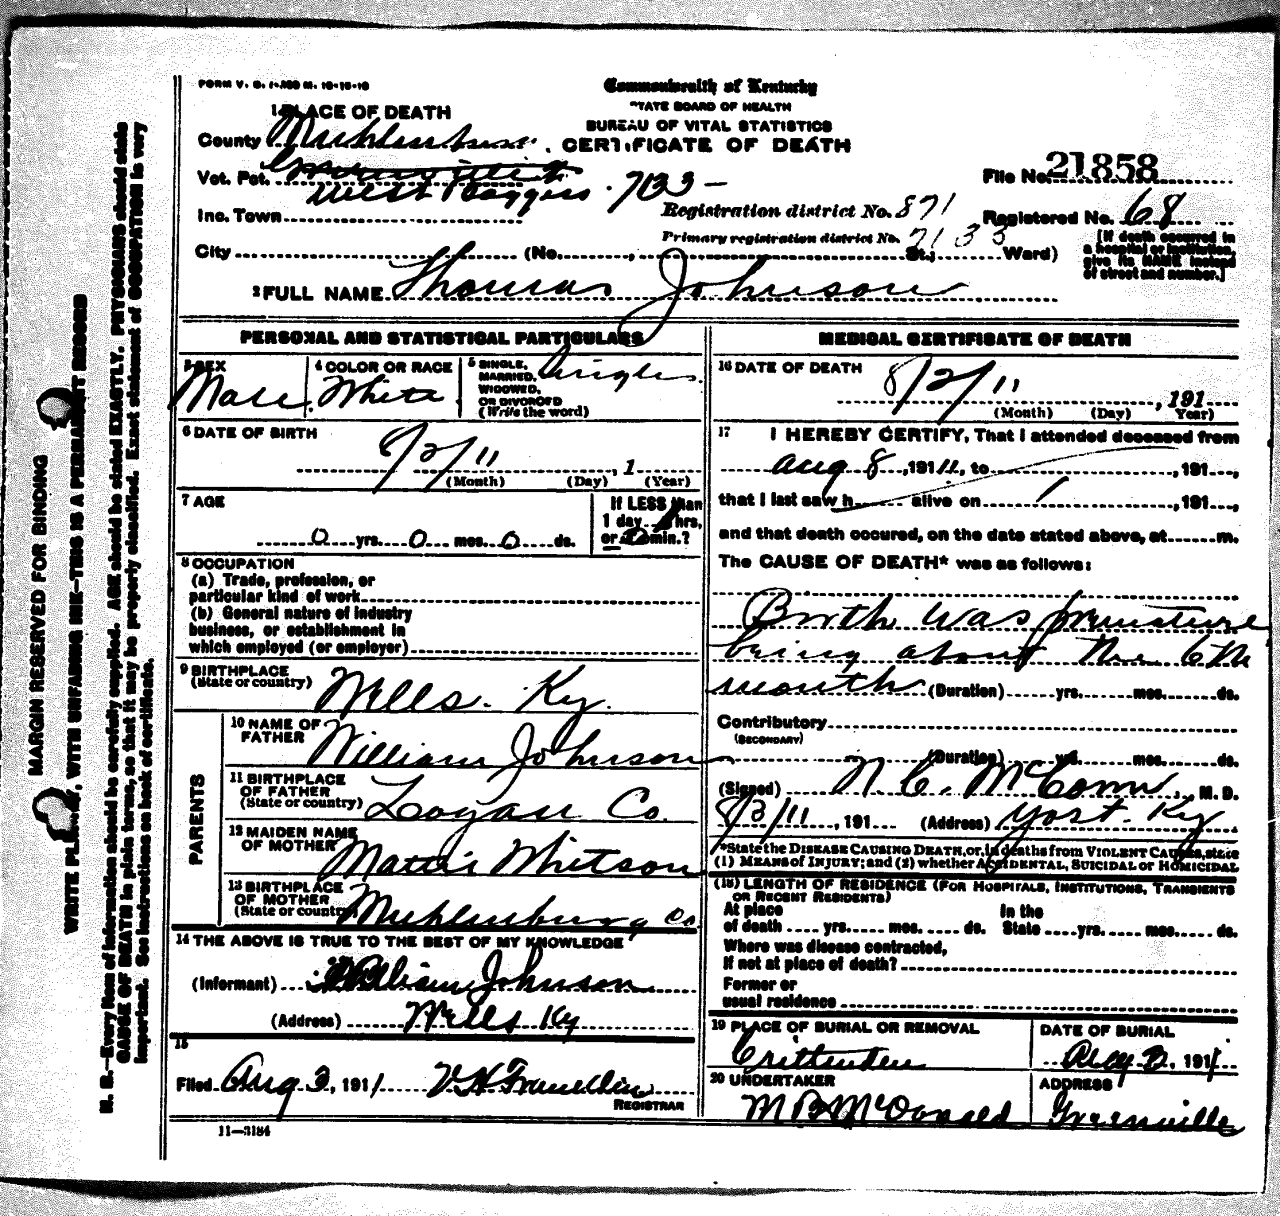 FORM V. S. 1-
Commonwealth of Kentucky
STATE BOARD OF HEALTH
BUREAU OF VITAL STATISTICS
CERTIFICATE OF DEATH
1 PLACE OF DEATH
County Muhlenburg
Vot. Pct. West 7133 -
Inc. Town
City (No. , St.; Ward)
File No. 21858
Registration district No. 871
Registered No. 68
Primary registration district No. 7133
[If death occurred in
a hospital or institution,
give its NAME instead
of street and number.]
2 FULL NAME Thomas Johnson
PERSONAL AND STATISTICAL PARTICULARS
3 SEX
Male
4 COLOR OR RACE
White
5 SINGLE,
MARRIED,
WIDOWED,
OR DIVORCED
(Write the word)
Single
6 DATE OF BIRTH
8/2/11 , 1
(Month) (Day) (Year)
7 AGE
0 yrs. 0 mos. 0 ds.
If LESS than
1 day hrs.
or min.?
8 OCCUPATION
(a) Trade, profession, or
particular kind of work
(b) General nature of industry
business, or establishment in
which employed (or employer)
9 BIRTHPLACE
(State or country) Wells. Ky.
PARENTS
10 NAME OF
FATHER William Johnson
11 BIRTHPLACE
OF FATHER
(State or country) Logan Co.
12 MAIDEN NAME
OF MOTHER Mattie Whitson
13 BIRTHPLACE
OF MOTHER
(State or country) Muhlenburg Co
14 THE ABOVE IS TRUE TO THE BEST OF MY KNOWLEDGE
(Informant) William Johnson
(Address) Wells Ky
15
Filed Aug 3, 1911 V H Franklin
REGISTRAR
11—3184
MEDICAL CERTIFICATE OF DEATH
16 DATE OF DEATH
8/2/11 , 191
(Month) (Day) Year)
17 I HEREBY CERTIFY, That I attended deceased from
Aug 8, 1911, to , 191 ,
that I last saw h alive on , 191 ,
and that death occured, on the date stated above, at m.
The CAUSE OF DEATH* was as follows:
Birth was premature
being about the 6th
month (Duration) yrs. mos. ds.
Contributory
(SECONDARY)
(Duration) yrs. mos. ds.
(Signed) N. C. , M. D.
8/3/11 , 191 (Address) Yost. Ky
*State the DISEASE CAUSING DEATH, or, in deaths from VIOLENT CAUSES, state
(1) MEANS OF INJURY; and (2) whether ACCIDENTAL, SUICIDAL OR HOMICIDAL
(18) LENGTH OF RESIDENCE (FOR HOSPITALS, INSTITUTIONS, TRANSIENTS
OR RECENT RESIDENTS)
At place
of death yrs. mos. ds.
In the
State yrs. mos. ds.
Where was disease contracted,
If not at place of death?
Former or
usual residence
19 PLACE OF BURIAL OR REMOVAL
Crittenden
DATE OF BURIAL
Aug 2, 1911
20 UNDERTAKER
M B McDonald
ADDRESS
Greenville
MARGIN RESERVED FOR BINDING
WRITE PLAINLY, WITH UNFADING INK—THIS IS A PERMANENT RECORD
N. B.—Every item of information should be carefully supplied. AGE should be stated EXACTLY. PHYSICIANS should state
CAUSE OF DEATH in plain terms, so that it may be properly classified. Exact statement of OCCUPATION is very
important. See instructions on back of certificate.